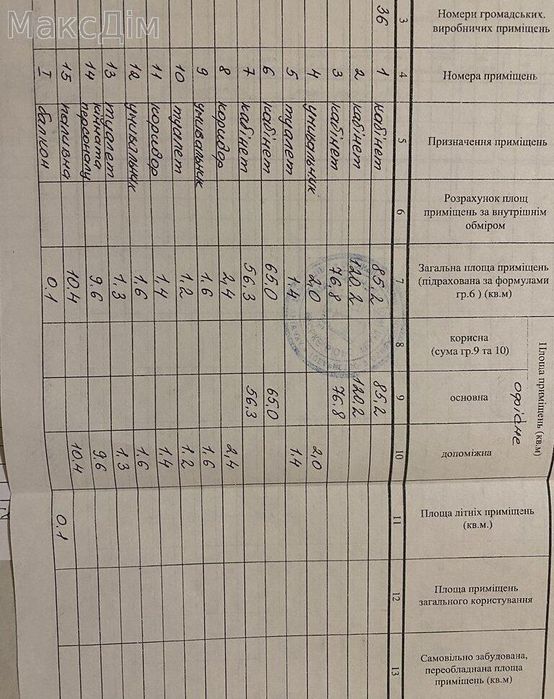 МаксДім
Номери громадських.
виробничих приміщень
Номера приміщень
Призначення приміщень
Розрахунок площ
приміщень за внутрішнім
обміром
Загальна площа приміщень
(підрахована за формулами
гр.6 ) (кв.м)
Площа приміщень (кв.м)
офісне
корисна
(сума гр.9 та 10)
основна
допоміжна
Площа літніх приміщень
(кв.м.)
Площа приміщень
загального користування
Самовільно забудована,
переобладнана площа
приміщень (кв.м)
3 4 5 6 7 8 9 10 11 12 13
36 1 кабінет 85,2 85,2
2 кабінет 120,2 120,2
3 кабінет 76,8 76,8
4 умивальник 2,0 2,0
5 туалет 1,4 1,4
6 кабінет 65,0 65,0
7 кабінет 56,3 56,3
8 коридор 2,4 2,4
9 умивальник 1,6 1,6
10 туалет 1,2 1,2
11 коридор 1,4 1,4
12 умивальник 1,6 1,6
13 туалет 1,3 1,3
14 кімната персоналу 9,6 9,6
15 паливна 10,4 10,4
I балкон 0,1 0,1